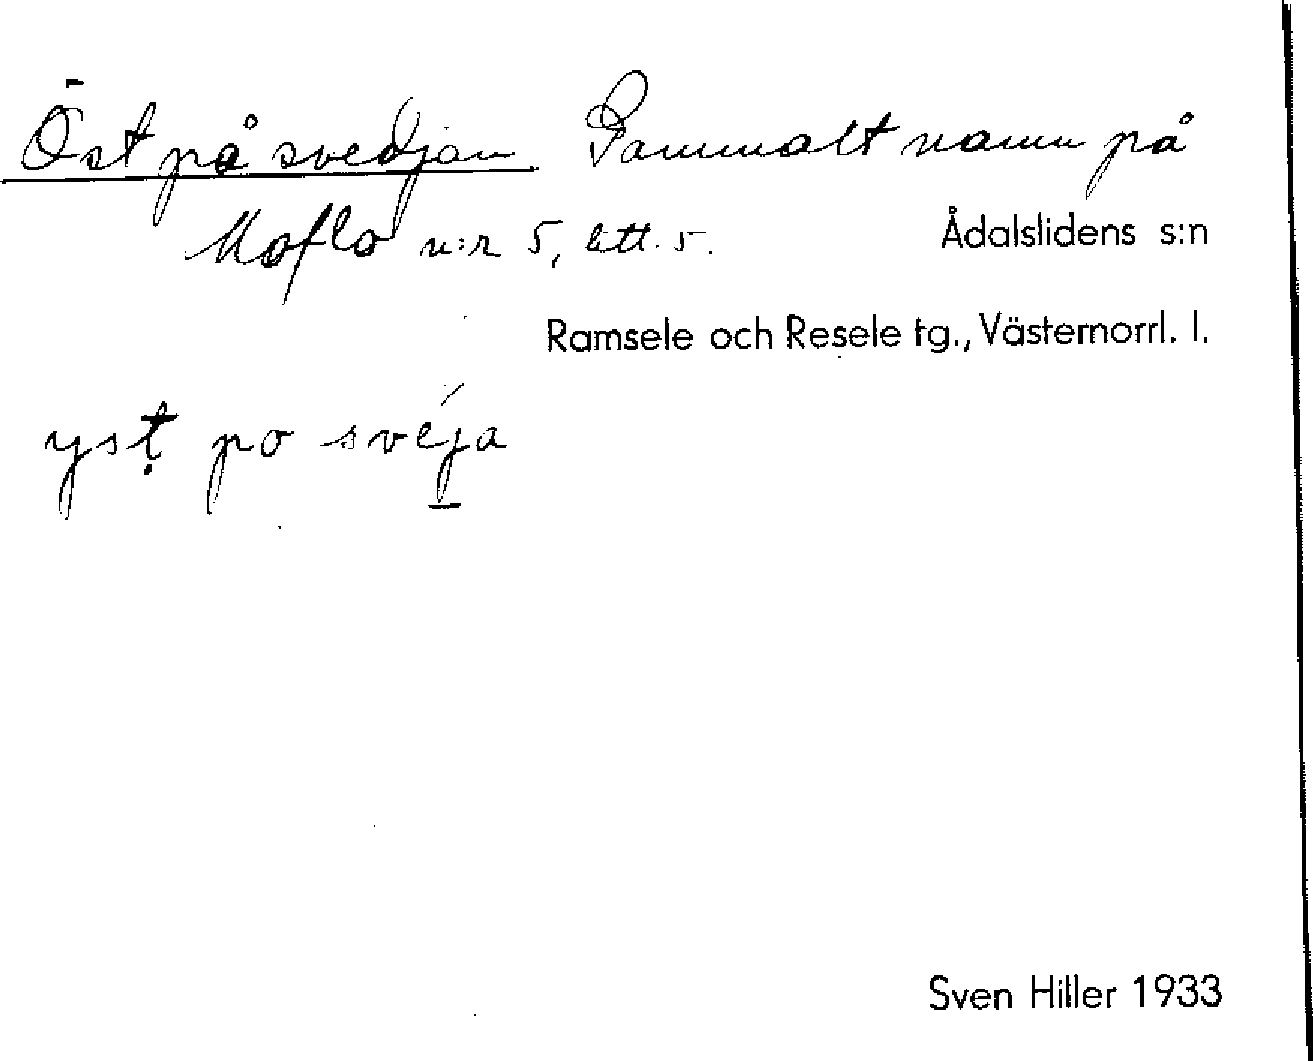 Öst på svedjan Gammalt namn på
Moflo n:r 5, litt. 5. Ådalslidens s:n
Ramsele och Resele tg., Västernorrl. l.
ysṭ po svéja
Sven Hiller 1933